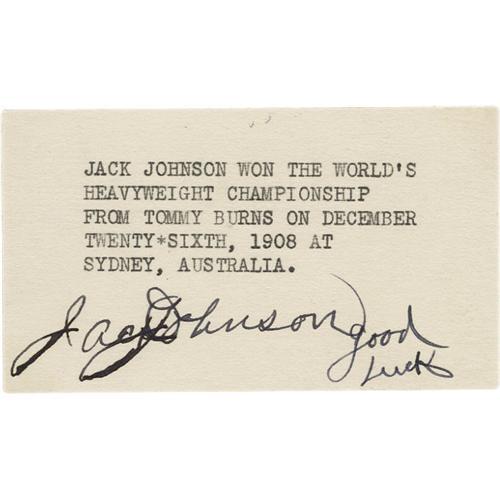 JACK JOHNSON WON THE WORLD'S
HEAVYWEIGHT CHAMPIONSHIP
FROM TOMMY BURNS ON DECEMBER
TWENTY*SIXTH, 1908 AT
SYDNEY, AUSTRALIA.
Jack Johnson good
luck